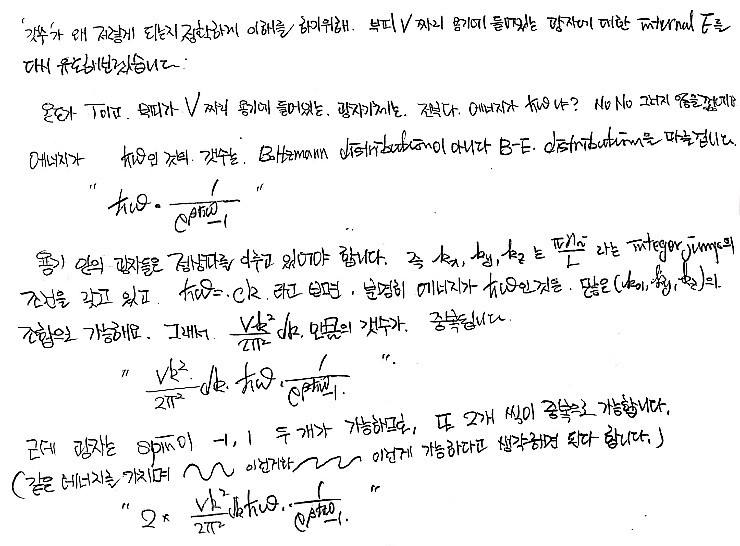 '갯수'가 왜 저렇게 되는지 정확하게 이해를 하기위해. 부피 V 짜리 용기에 들어있는 광자에 대한 internal E를
다시 유도해보겠습니다.
온도가 T이고. 부피가 V 짜리 용기에 들어있는. 광자기체는. 전부다. 에너지가 ħω냐? No No 그러지 않을
에너지가 ħω인 것의. 갯수는. Boltzmann distribution이 아니다 B-E. distribution을 따를 겁니다.
" ħω · 1/(e^{βħω}-1) "
용기 안의 광자들은 정상파를 이루고 있어야 합니다. 즉 kx, ky, kz 는 πn/L 라는 integer jump의
조건을 갖고 있고. ħω = ck 라고 보면. 분명히 에너지가 ħω인것은. 많은 (kx, ky, kz)의
조합으로 가능해요. 그래서. Vk²/2π² dk. 만큼의 갯수가. 중복됩니다.
" Vk²/2π² dk · ħω · 1/(e^{βħω}-1) ".
근데 광자는 spin이 -1, 1 두 개가 가능하므로, 또 2개 씩이 중복으로 가능합니다.
(같은 에너지를 가지며 이런거와 이런게 가능하다고 생각하면 된다 합니다.)
" 2 × Vk²/2π² dk ħω · 1/(e^{βħω}-1) "